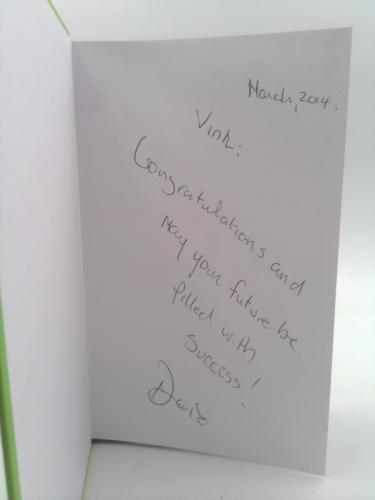 March, 2014.
Congratulations and
May your future be
filled with
Success!